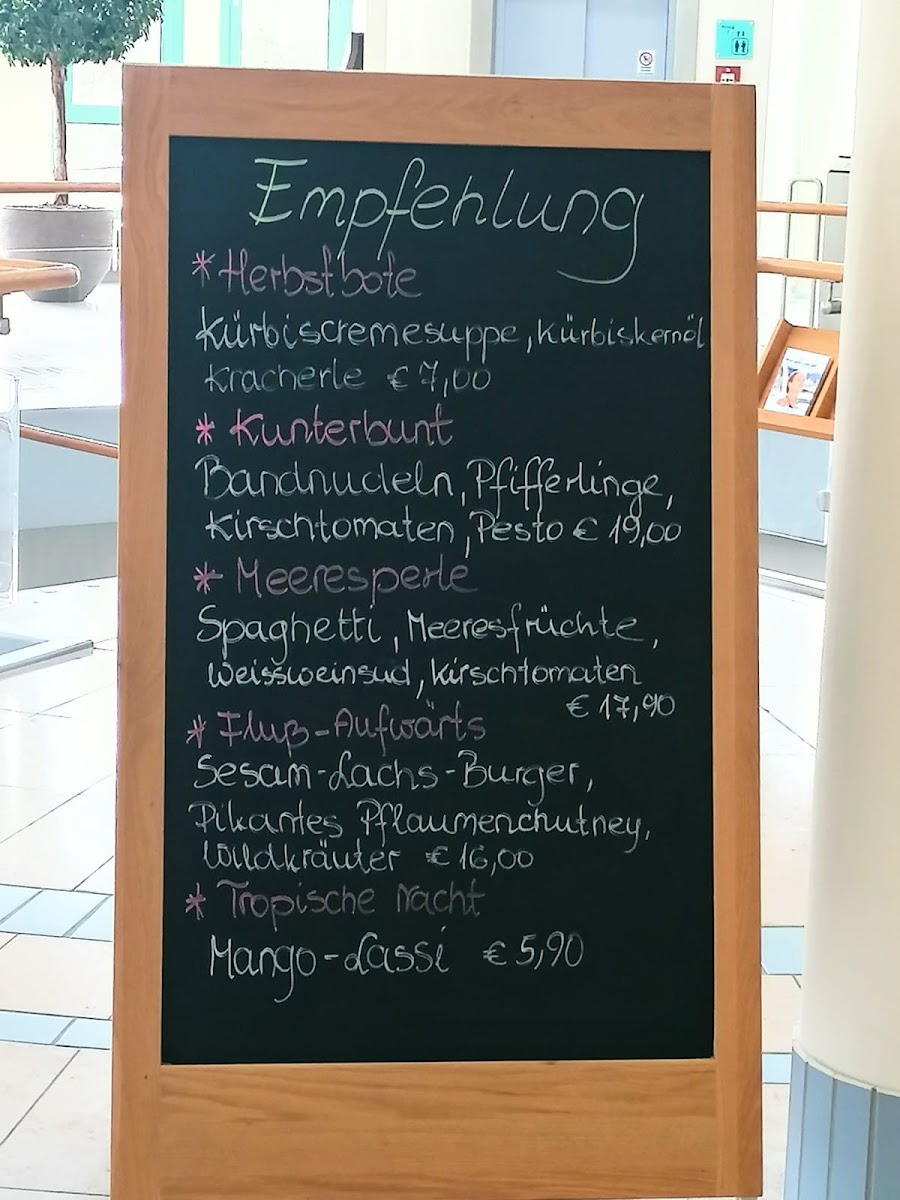 Empfehlung
* Herbstbote
Kürbiscremesuppe, Kürbiskernöl
Kracherle € 7,00
* Kunterbunt
Bandnudeln, Pfifferlinge,
Kirschtomaten, Pesto € 19,00
* Meeresperle
Spaghetti, Meeresfrüchte,
Weissweinsud, Kirschtomaten
€ 17,90
* Fluß-Aufwärts
Sesam-Lachs-Burger,
Pikantes Pflaumenchutney,
Wildkräuter € 16,00
* Tropische Nacht
Mango-Lassi € 5,90